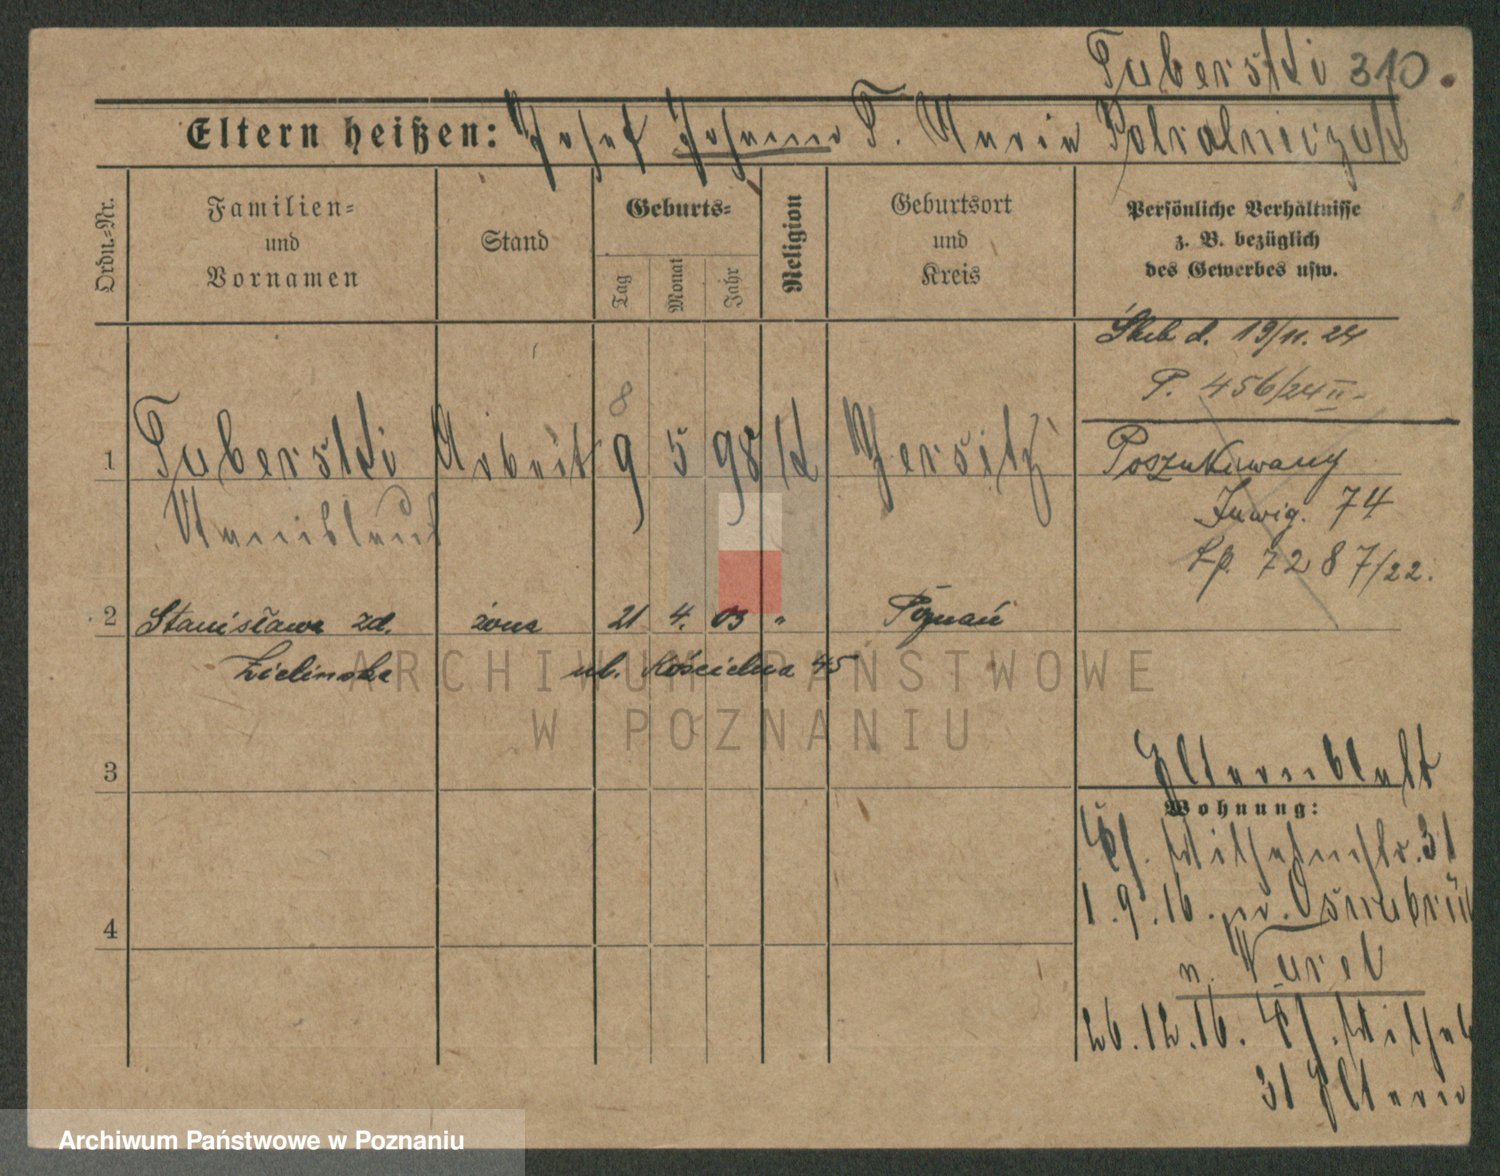 Tuberski 310.
Eltern heißen: Josef Johann T. Maria
Ordn.-Nr.
Familien-
und
Vornamen
Stand
Geburts-
Tag
Monat
Jahr
Religion
Geburtsort
und
Kreis
Persönliche Verhältnisse
z. B. bezüglich
des Gewerbes usw.
Ślub d. 19/11. 24
P. 456/24 II
8
1 Tuberski Arbeit 9 5 98 K Jersitz
Poszukiwany
Inwig. 74
Lp. 7287/22.
2 Stanisława zd. żona 21 4. 03 " Poznań
Zielinska ul. Kościelna 45
ARCHIWUM PAŃSTWOWE
W POZNANIU
3
Elternblatt
Wohnung:
Wilhelmstr. 31
4
1.9.16. Osnabrü
n. Varel
26.12.16. Wilhel
31 Eltern
Archiwum Państwowe w Poznaniu